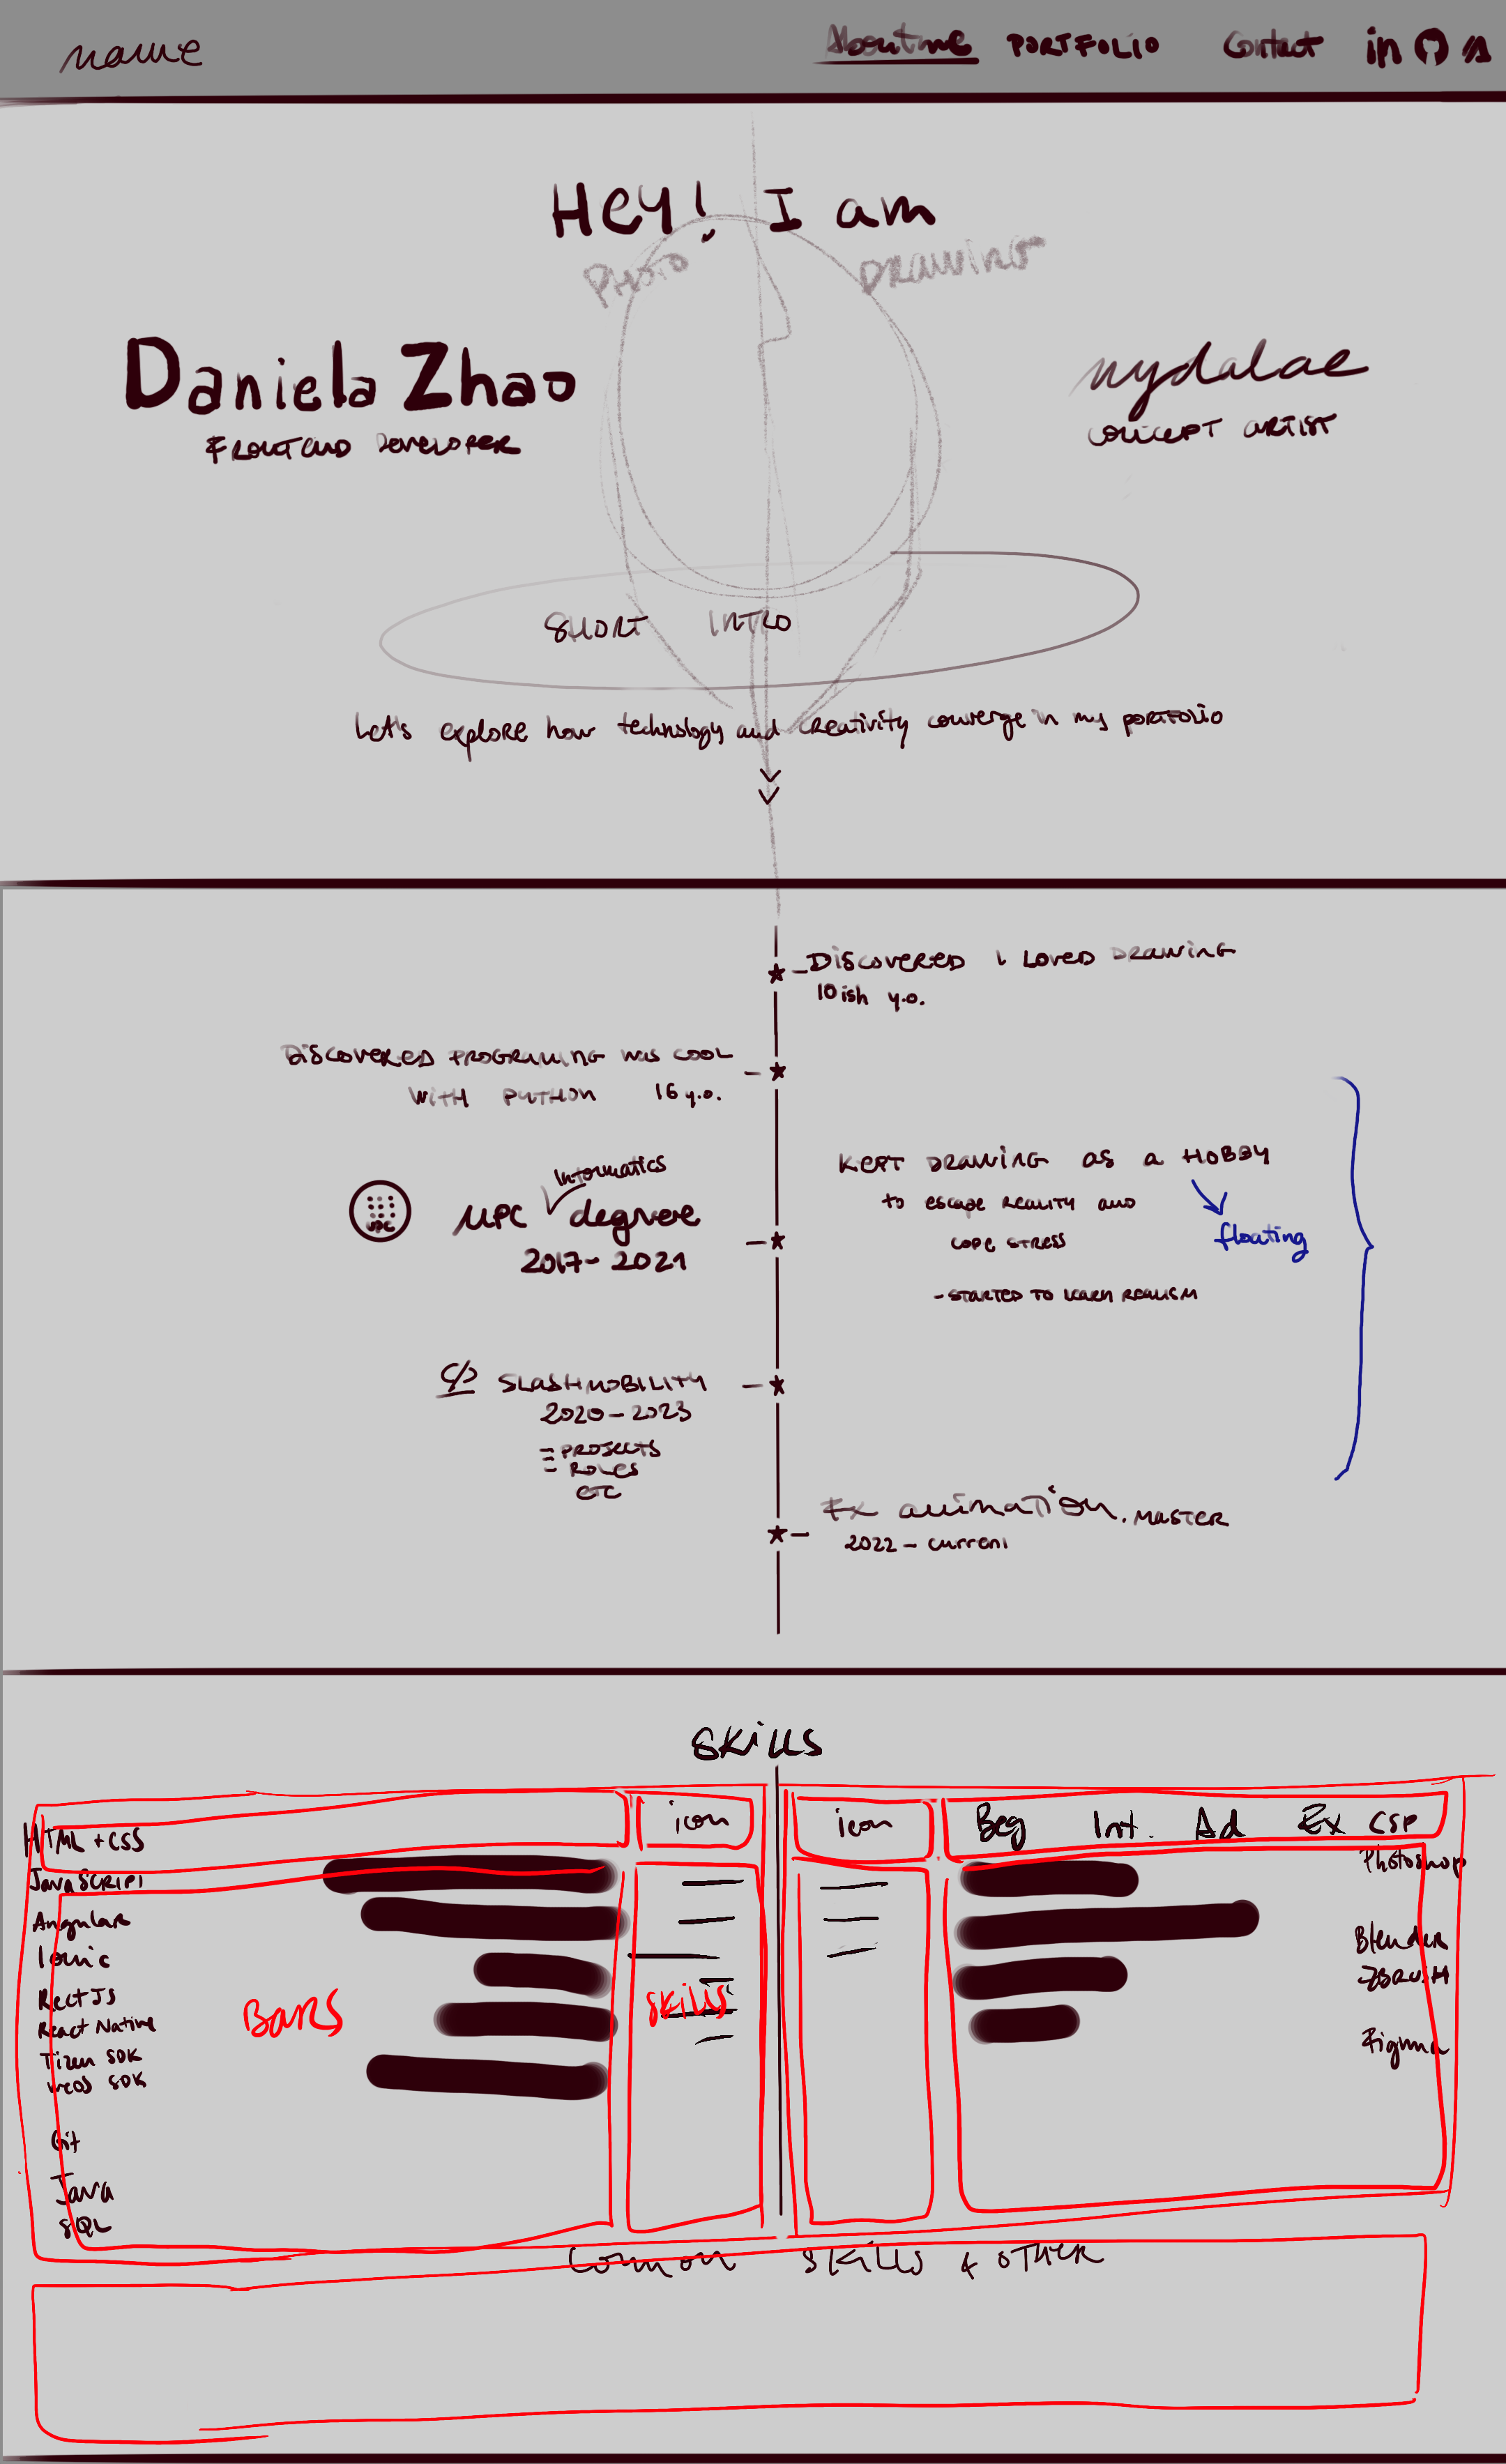 name
About me PORTFOLIO Contact in
Hey! I am
PHOTO DRAWING
Daniela Zhao
FRONTEND DEVELOPER
nydalae
CONCEPT ARTIST
SHORT INTRO
Let's explore how technology and creativity converge in my portfolio
DISCOVERED I LOVED DRAWING
10ish y.o.
DISCOVERED PROGRAMING WAS COOL
WITH PYTHON 16 y.o.
Informatics
UPC
UPC degree
2017-2021
KEPT DRAWING AS A HOBBY
TO ESCAPE REALITY AND
COPE STRESS
floating
- STARTED TO LEARN REALISM
SLASHMOBILITY
2020-2023
PROJECTS
ROLES
ETC
FX animation. MASTER
2022 - current
SKILLS
icon
icon
Beg Int. Ad Ex
HTML + CSS
JavaSCRIPT
Angular
Ionic
RectJS
React Native
Tizen SDK
weOS SDK
Git
Java
SQL
BARS
SKILLS
CSP
Photoshop
Blender
ZBRUSH
Figma
Common SKILLS & OTHER